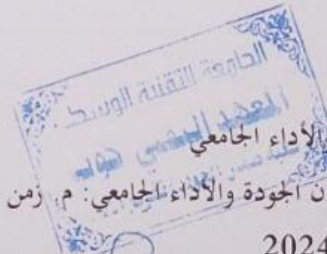 الجامعة التقنية الوسطى
المعهد التقني
بالأداء الجامعي
ن الجودة والأداء الجامعي: م. زمن
2024